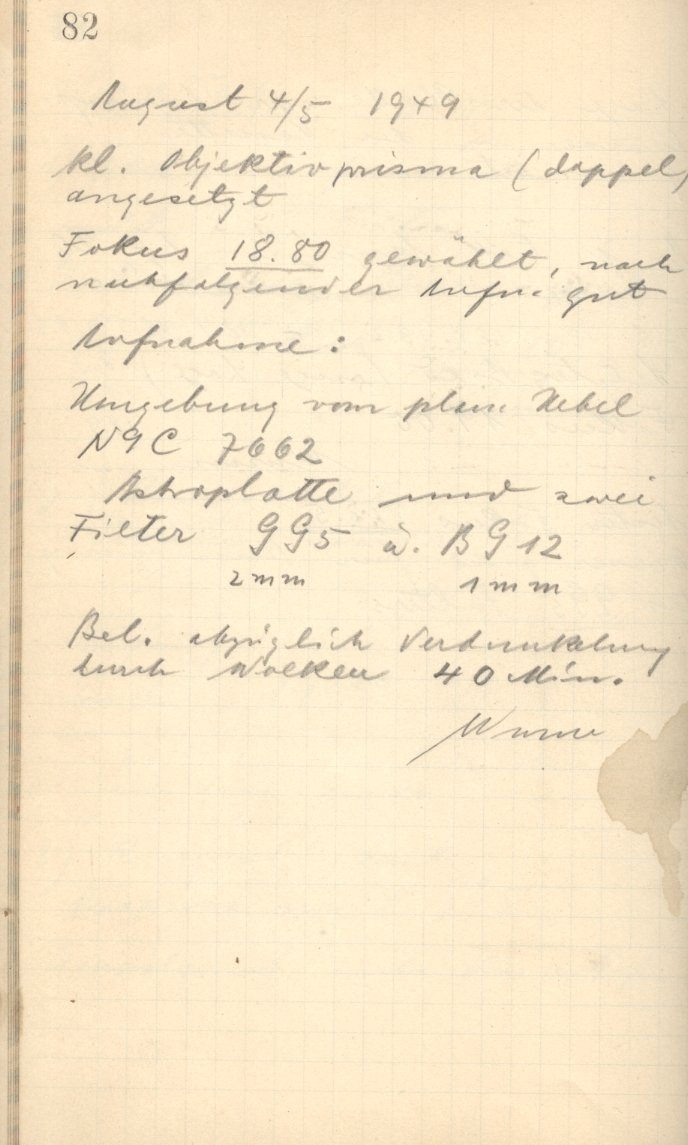 82
August 4/5 1949
kl. Objektivprisma (doppel)
angesetzt
Fokus 18.80 gewählt, nach
nachfolgender Aufn. gut
Aufnahme:
Umgebung vom plan. Nebel
NGC 7662
Astroplatte und zwei
Filter GG5 u. BG12
2mm 1mm
Bel. abzüglich Verdunkelung
durch Wolken 40 Min.
Wurm